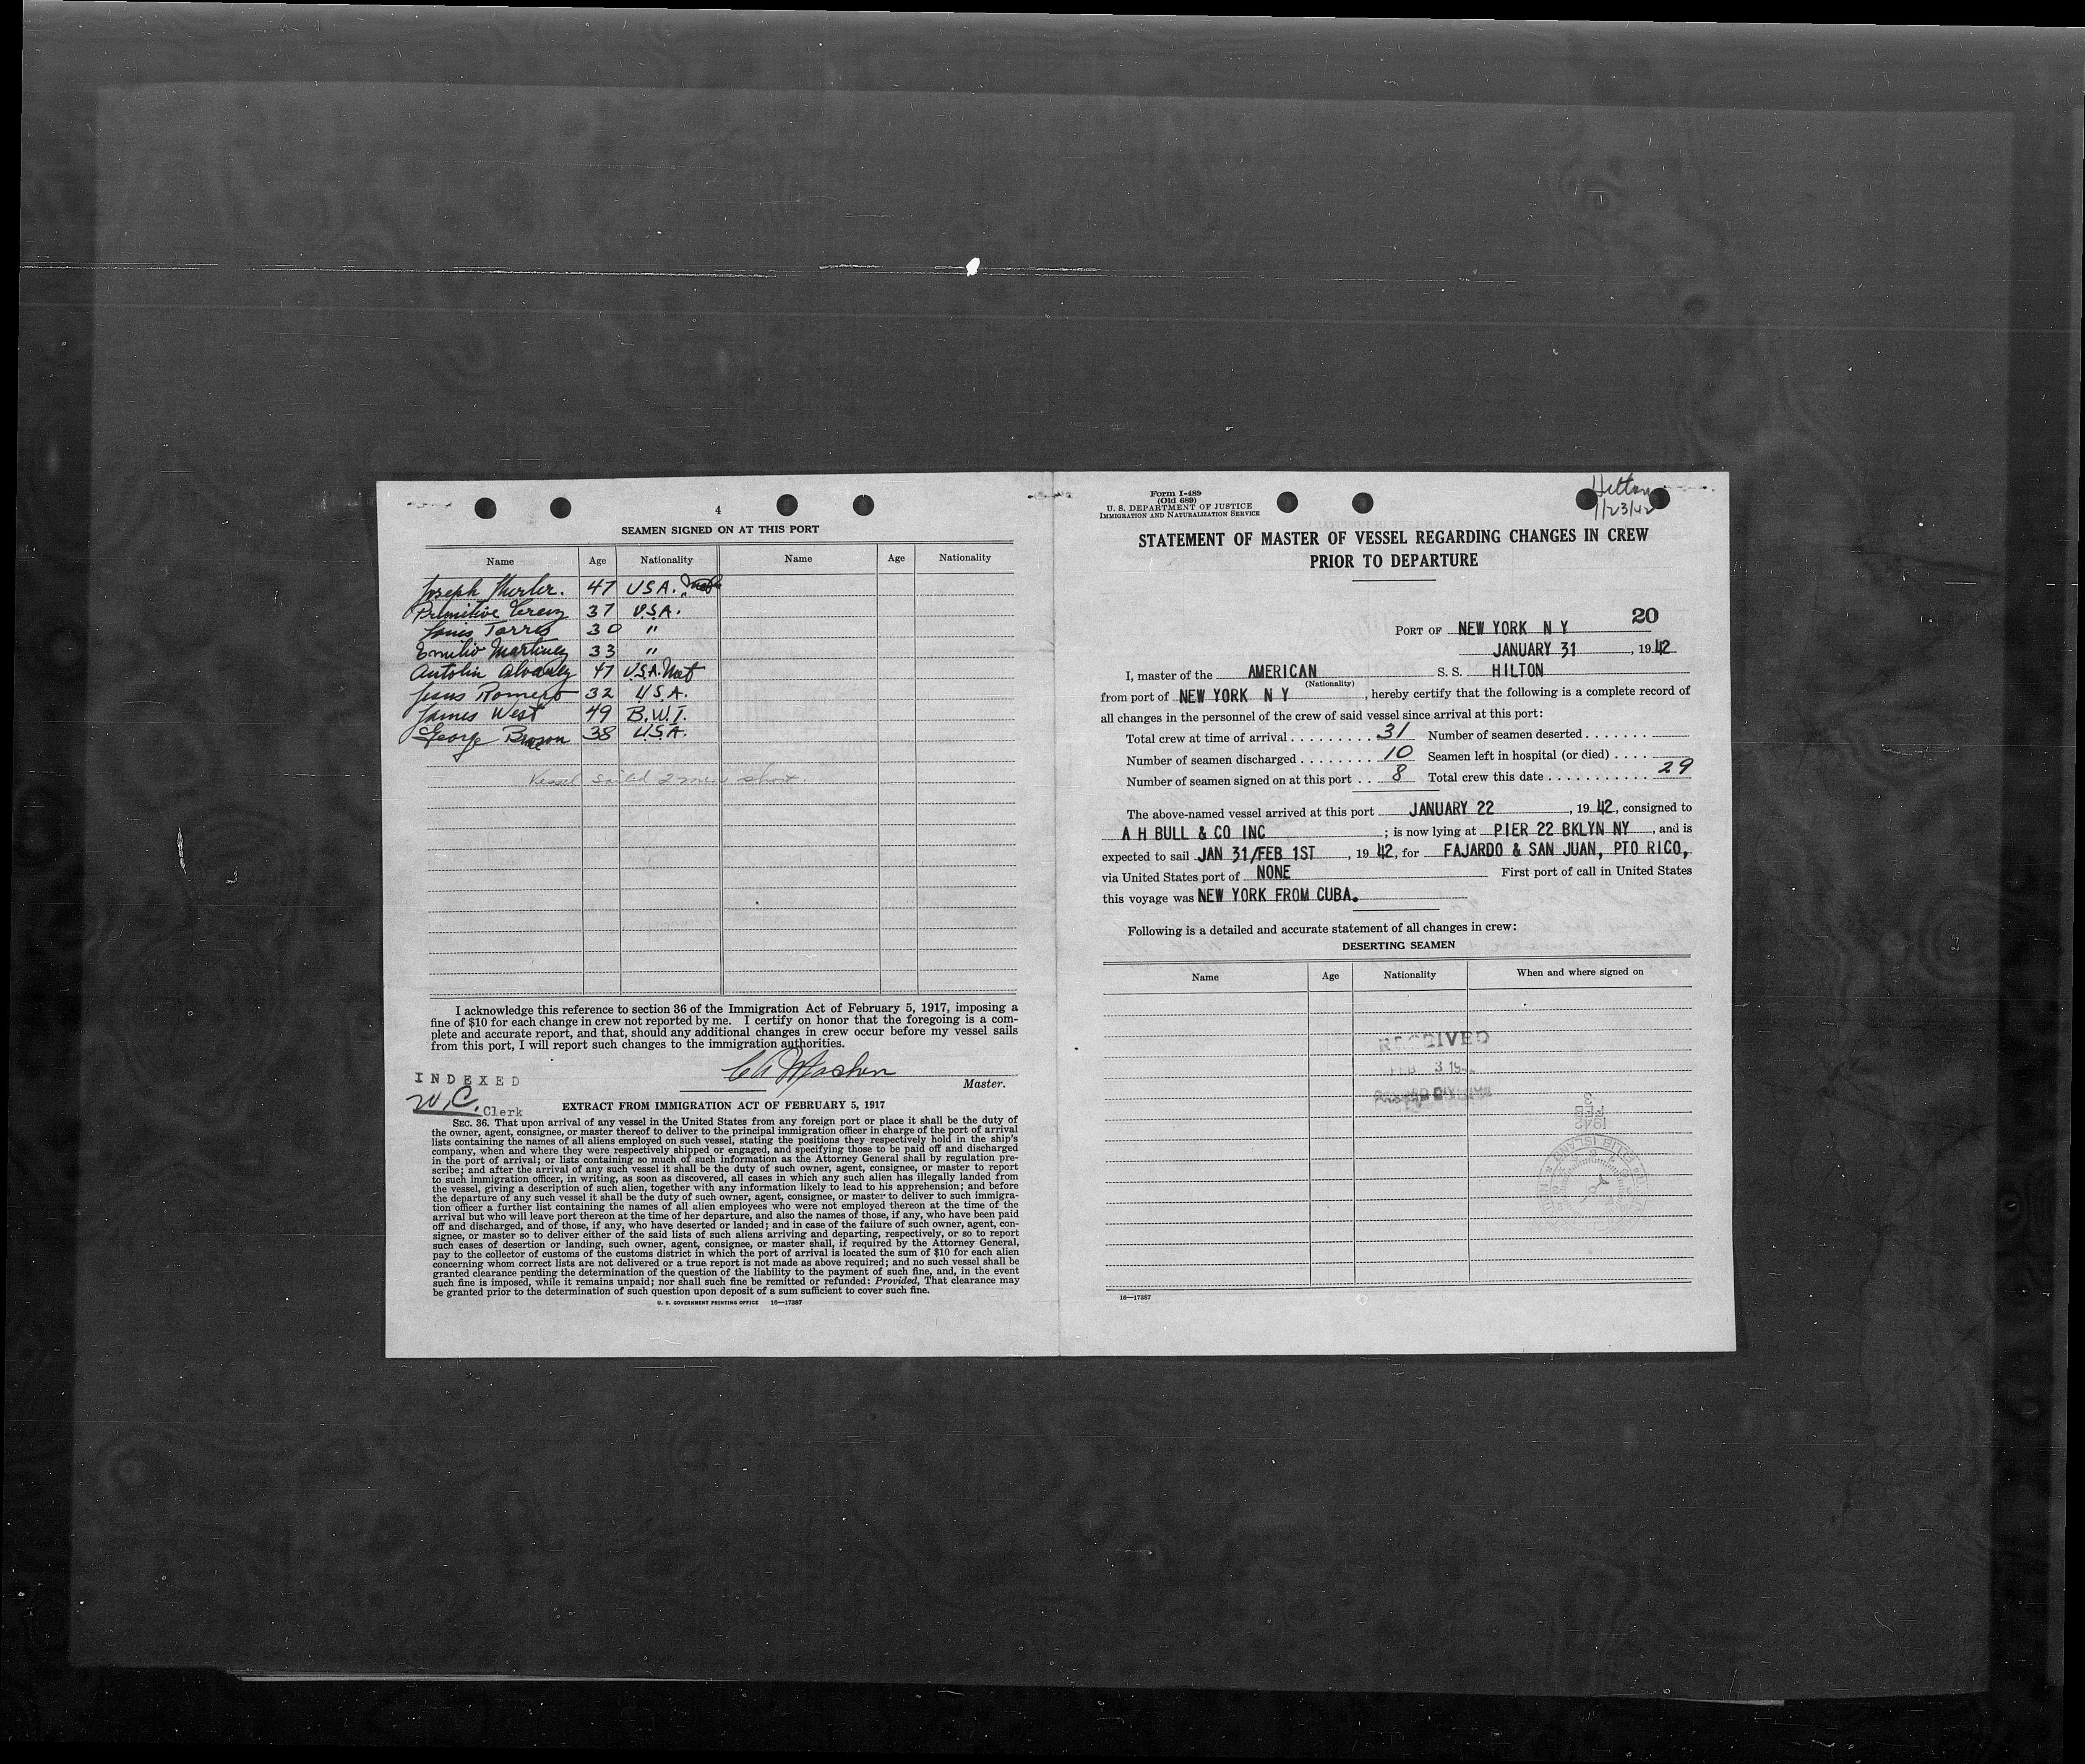 4
SEAMEN SIGNED ON AT THIS PORT
Name Age Nationality Name Age Nationality
Joseph 47 USA.
Primitivo 37 U.S.A.
Louis Torres 30 "
Emilio Martinez 33 "
Antolin 47 U.S.A. Nat
Jesus Romero 32 U.S.A.
James West 49 B.W.I.
George 38 U.S.A.
Vessel sailed 2 men short.
I acknowledge this reference to section 36 of the Immigration Act of February 5, 1917, imposing a
fine of $10 for each change in crew not reported by me. I certify on honor that the foregoing is a com-
plete and accurate report, and that, should any additional changes in crew occur before my vessel sails
from this port, I will report such changes to the immigration authorities.
Master.
INDEXED
W.C. Clerk
EXTRACT FROM IMMIGRATION ACT OF FEBRUARY 5, 1917
SEC. 36. That upon arrival of any vessel in the United States from any foreign port or place it shall be the duty of
the owner, agent, consignee, or master thereof to deliver to the principal immigration officer in charge of the port of arrival
lists containing the names of all aliens employed on such vessel, stating the positions they respectively hold in the ship's
company, when and where they were respectively shipped or engaged, and specifying those to be paid off and discharged
in the port of arrival; or lists containing so much of such information as the Attorney General shall by regulation pre-
scribe; and after the arrival of any such vessel it shall be the duty of such owner, agent, consignee, or master to report
to such immigration officer, in writing, as soon as discovered, all cases in which any such alien has illegally landed from
the vessel, giving a description of such alien, together with any information likely to lead to his apprehension; and before
the departure of any such vessel it shall be the duty of such owner, agent, consignee, or master to deliver to such immigra-
tion officer a further list containing the names of all alien employees who were not employed thereon at the time of the
arrival but who will leave port thereon at the time of her departure, and also the names of those, if any, who have been paid
off and discharged, and of those, if any, who have deserted or landed; and in case of the failure of such owner, agent, con-
signee, or master so to deliver either of the said lists of such aliens arriving and departing, respectively, or so to report
such cases of desertion or landing, such owner, agent, consignee, or master shall, if required by the Attorney General,
pay to the collector of customs of the customs district in which the port of arrival is located the sum of $10 for each alien
concerning whom correct lists are not delivered or a true report is not made as above required; and no such vessel shall be
granted clearance pending the determination of the question of the liability to the payment of such fine, and, in the event
such fine is imposed, while it remains unpaid; nor shall such fine be remitted or refunded: Provided, That clearance may
be granted prior to the determination of such question upon deposit of a sum sufficient to cover such fine.
U. S. GOVERNMENT PRINTING OFFICE 16—17387
Form I-489
(Old 689)
U. S. DEPARTMENT OF JUSTICE
IMMIGRATION AND NATURALIZATION SERVICE
Hilton
1/23/42
STATEMENT OF MASTER OF VESSEL REGARDING CHANGES IN CREW
PRIOR TO DEPARTURE
20
PORT OF NEW YORK N Y
JANUARY 31, 1942
I, master of the AMERICAN S. S. HILTON
(Nationality)
from port of NEW YORK N Y, hereby certify that the following is a complete record of
all changes in the personnel of the crew of said vessel since arrival at this port:
Total crew at time of arrival . . . . . . . . . 31 Number of seamen deserted . . . . . . .
Number of seamen discharged . . . . . . . . 10 Seamen left in hospital (or died) . . . .
Number of seamen signed on at this port . . 8 Total crew this date . . . . . . . . . . . 29
The above-named vessel arrived at this port JANUARY 22, 1942, consigned to
A H BULL & CO INC; is now lying at PIER 22 BKLYN NY, and is
expected to sail JAN 31/FEB 1ST, 1942, for FAJARDO & SAN JUAN, PTO RICO,
via United States port of NONE First port of call in United States
this voyage was NEW YORK FROM CUBA.
Following is a detailed and accurate statement of all changes in crew:
DESERTING SEAMEN
Name Age Nationality When and where signed on
RECEIVED
FEB 3
1942
FEB
3
ELLIS ISLAND
16—17387